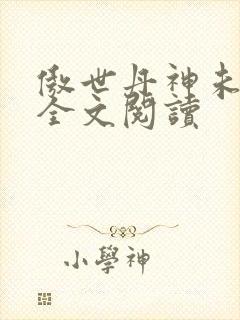 傲世丹神未
全文閱讀
小學神